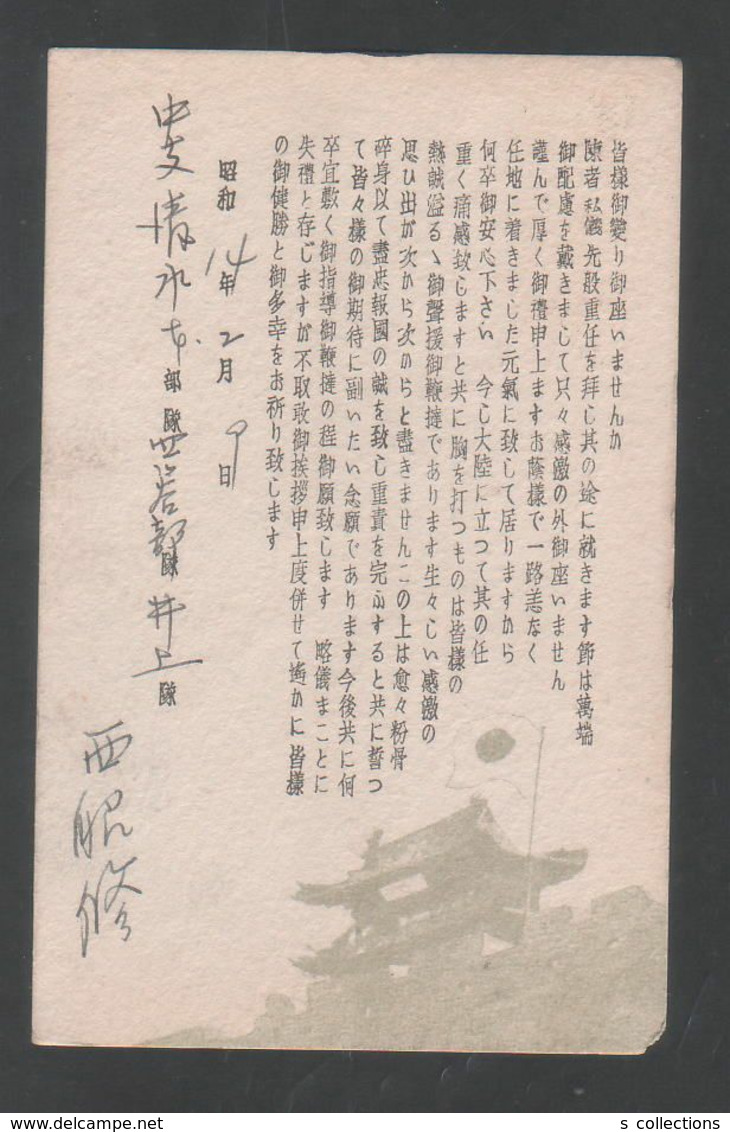 皆様御變り御座いませんか
陳者私儀先般重任を拝し其の途に就きます節は萬端
御配慮を戴きまして只々感激の外御座いません
謹んで厚く御禮申上ますお蔭様で一路恙なく
任地に着きました元氣に致して居りますから
何卒御安心下さい　今し大陸に立つて其の任
重く痛感致しますと共に胸を打つものは皆様の
熱誠溢るゝ御聲援御鞭撻であります生々しい感激の
思ひ出が次から次からと盡きませんこの上は愈々粉骨
碎身以て盡忠報國の誠を致し重責を完ふすると共に誓つ
て皆々様の御期待に副いたい念願であります今後共に何
卒宜敷く御指導御鞭撻の程御願致します　略儀まことに
失禮と存じますが不取敢御挨拶申上度併せて遙かに皆様
の御健勝と御多幸をお祈り致します
昭和14年2月9日
中支清水本部隊 部隊井上隊
西 修
s collections